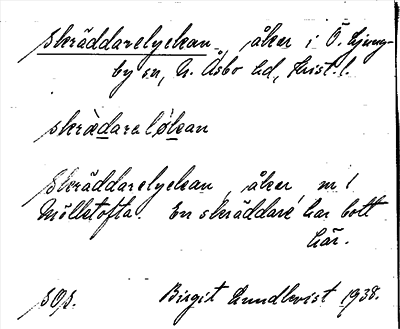 Skräddarelyckan, åker i Ö. Ljung-
by sn, N. Åsbo hd, Krist. l.
skrädareløkan
Skräddarelyckan, åker, nr 1
Mölletofta. En skräddare har bott
här.
sOs. Birgit Lundkvist 1938.